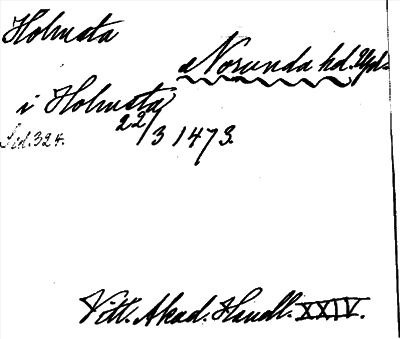 Holmsta
Norunda hd. Upl.
i Holmsta
22/3 1473.
Sid. 324.
Vitt. Akad. Handl. XXIV.